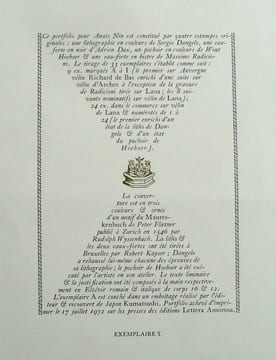 Ce portfolio pour Anaïs Nin est constitué par quatre estampes ori-
ginales : une lithographie en couleurs de Sergio Dangelo, une eau-
forte en noir d'Adrien Dax, un pochoir en couleurs de Wout
Hoeboer & une eau-forte en bistre de Massimo Radicio-
ni. Le tirage de 33 exemplaires s'établit comme suit :
9 ex. marqués A à I (le premier sur Auvergne
vélin Richard de Bas enrichi d'une suite sur
vélin d'Arches à l'exception de la gravure
de Radicioni tirée sur Lana ; les 8 sui-
vants nominatifs sur vélin de Lana) ;
24 ex. dans le commerce sur vélin
de Lana & numérotés de 1 à
24 (le premier enrichi d'un
état de la litho de Dan-
gelo & d'un état
du pochoir de
Hoeboer).
La couver-
ture est en trois
couleurs & ornée
d'un motif du Maures-
kenbuch de Peter Flötner
publié à Zurich en 1546 par
Rudolph Wyssenbach. La litho &
les deux eaux-fortes ont été tirées à
Bruxelles par Robert Kayser ; Dangelo
a rehaussé lui-même chacune des épreuves
de sa lithographie ; le pochoir de Hoeboer a été exé-
cuté par l'artiste en son atelier. Le texte liminaire
& la justification ont été composés à la main respective-
ment en Elzévir romain & italique de corps 16 & 12.
L'exemplaire A est conclu dans un emboîtage réalisé par l'édi-
teur & recouvert de Japon Kumatsushi. Portfolio achevé d'impri-
mer le 17 juillet 1972 sur les presses des éditions Lettera Amorosa.
EXEMPLAIRE S.